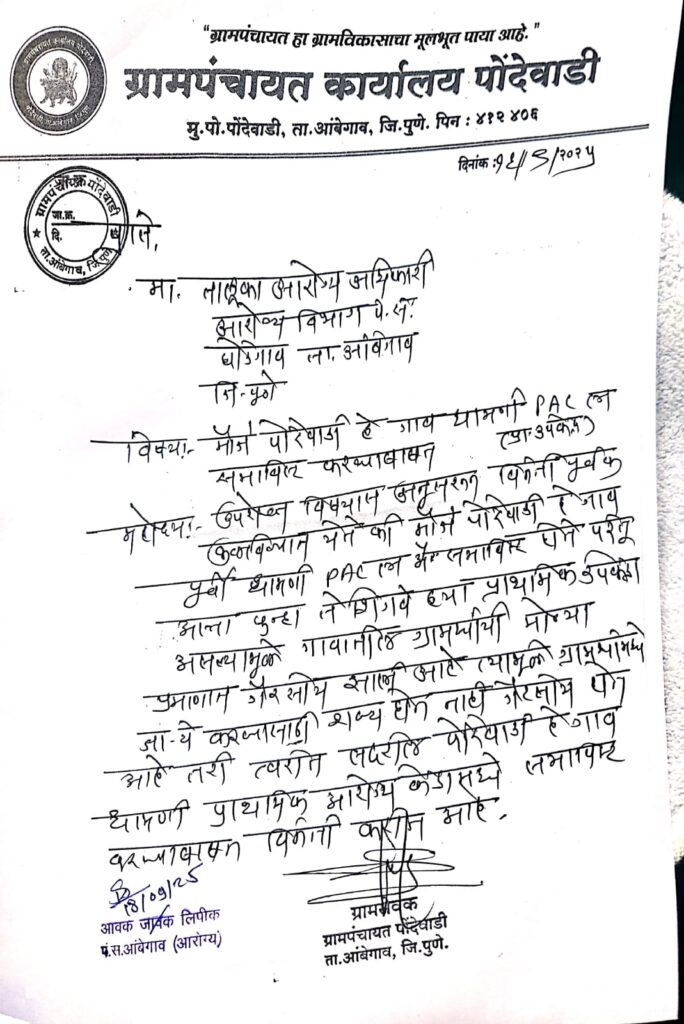 "ग्रामपंचायत हा ग्रामविकासाचा मूलभूत पाया आहे."
ग्रामपंचायत कार्यालय पोंदेवाडी
मु.पो.पोंदेवाडी, ता.आंबेगाव, जि.पुणे. पिन : ४१२ ४०६
दिनांक :१८/९/२०२५
ग्रामपंचायत पोंदेवाडी
जा.क्र.
दि.
ता.आंबेगाव, जि.पुणे
प्रति,
मा. तालूका आरोग्य अधिकारी
आरोग्य विभाग पं.स.
घोडेगाव ता. आंबेगाव
जि-पुणे
विषय:- मौजे पोंदेवाडी हे गाव धामणी PAC त
(प्रा.उपकेंद्र)
समाविष्ट करण्याबाबत
महोदय:- उपरोक्त विषयास अनुसरून विनंती पूर्वक
कळविण्यात येते की मौजे पोंदेवाडी हे गाव
पूर्वी धामणी PAC त समाविष्ट होते परंतू
आता पुन्हा ते शिंगवे ह्या प्राथमिक उपकेंद्रा
असल्यामुळे गावातील ग्रामस्थांची मोठ्या
प्रमाणात गैरसोय झाली आहे त्यामुळे ग्रामस्थांमध्ये
जा-ये करण्यासाठी शक्य होत नाही गैरसोय होत
आहे तरी त्वरीत सदरील पोंदेवाडी हे गाव
धामणी प्राथमिक आरोग्य केंद्रामध्ये समाविष्ट
करण्याबाबत विनंती करीत आहे.
18/09/25
आवक जावक लिपीक
पं.स.आंबेगाव (आरोग्य)
ग्रामसेवक
ग्रामपंचायत पोंदेवाडी
ता.आंबेगाव, जि.पुणे.